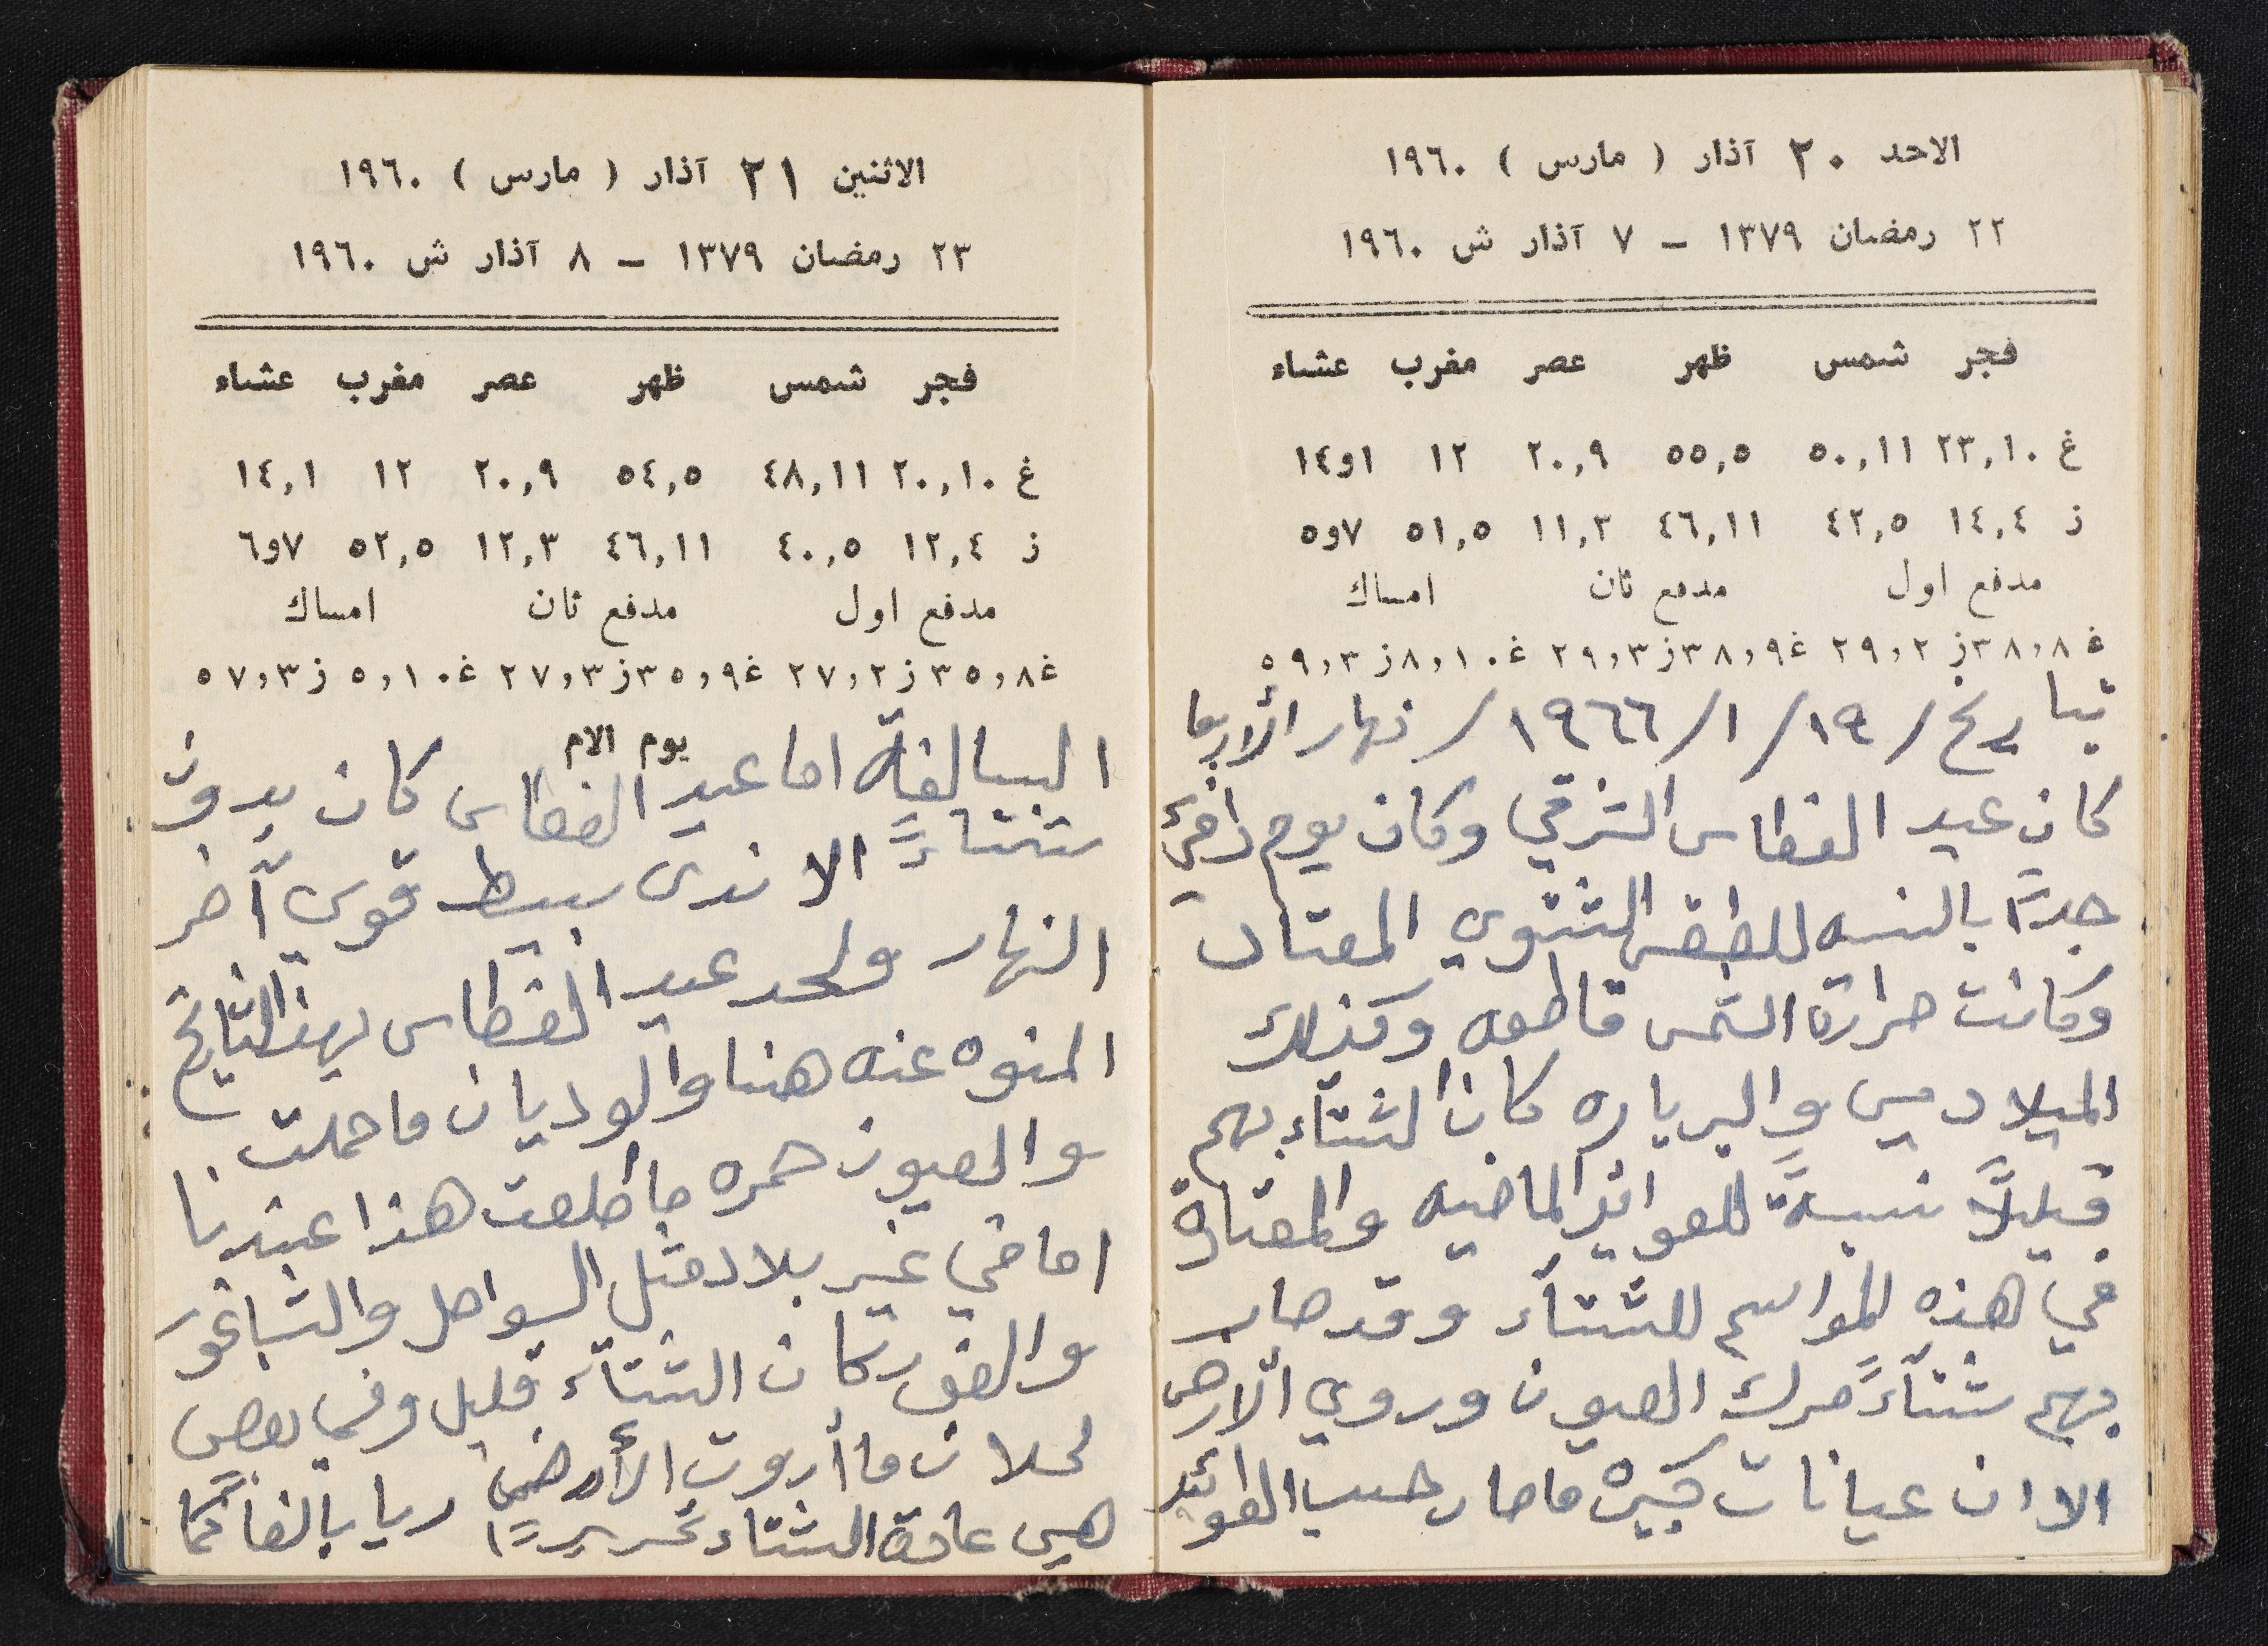 الاحد ٢٠ آذار ( مارس ) ١٩٦٠
٢٢ رمضان ١٣٧٩ - ٧ آذار ش ١٩٦٠
فجر شمس ظهر عصر مغرب عشاء
غ ٢٣,١٠ ٥٠,١١ ٥٥,٥ ٢٠,٩ ١٢ ١و١٤
ز ١٤,٤ ٤٢,٥ ٤٦,١١ ١١,٣ ٥١,٥ ٧و٥
مدفع اول مدفع ثان امساك
غ ٣٨,٨ ز ٢٩,٢ غ ٣٨,٩ ز ٢٩,٣ غ ٨,١٠ ز ٥٩,٣
بتاريخ / ١٩ / ١ / ١٩٦٦ / نهار الأربعا
كان عيد الغطاس الشرقي وكان يوم دافئ
جداً بالنسبه للطقس الشتوي المعتاد
وكانت حرارة الشمس قاطعه وكذلك
الميلاد والبرباره كان الشتاء بهم
قليلاً نسبةً للعوائد الماضيه والمعتادة
في هذه المواسم للشتآء وقد صار
بهم شتآءً حرك العيون وروي الارض
الا ان عيانات كبيره ما صار حسب العوائد
الاثنين ٢١ آذار ( مارس ) ١٩٦٠
٢٣ رمضان ١٣٧٩ - ٨ آذار ش ١٩٦٠
فجر شمس ظهر عصر مغرب عشاء
غ ٢٠,١٠ ٤٨,١١ ٥٤,٥ ٢٠,٩ ١٢ ١٤,١
ز ١٢,٤ ٤٠,٥ ٤٦,١١ ١٢,٣ ٥٢,٥ ٧و٦
مدفع اول مدفع ثان امساك
غ ٣٥,٨ ز ٢٧,٢ غ ٣٥,٩ ز ٢٧,٣ غ ٥,١٠ ز ٥٧,٣
يوم الام
السالفة اما عيد الغطاس كان بدون
شتاءً الا ندى بسيط قوي آخر
النهار ولحد عيد الغطاس بهذا التاريخ
المنوه عنه هنا والوديان ما حملت
والعيون حمره ما طلعت هذا عندنا
اما في غير بلاد مثل السواحل والشاغور
والغور كان الشتآء قليل وفي بعض
محلات ما أروت الأرض ريا بالغاً كما
هي عادة الشتاء تحريرًا